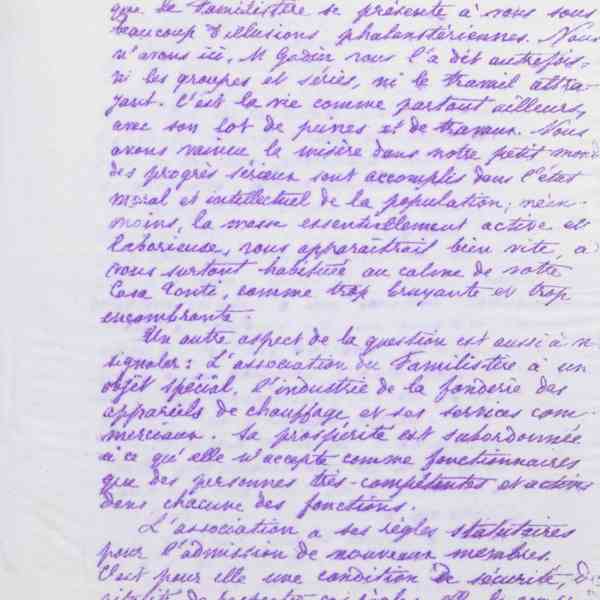 que le Familistère se présente à vous sous
beaucoup d'illusions phalanstériennes. Nous
n'avons ici, M Godin vous l'a dit autrefois,
ni les groupes et séries, ni le travail attra-
yant. C'est la vie comme partout ailleurs,
avec son lot de peines et de travaux. Nous
avons vaincu la misère dans notre petit mond
des progrès sérieux sont accomplis dans l'état
moral et intellectuel de la population; néan-
moins, la masse essentiellement active et
laborieuse, vous apparaîtrait bien vite, à
vous surtout habitué au calme de votre
Casa Tonti, comme trop bruyante et trop
encombrante.
Un autre aspect de la question est aussi à
signaler: L'association du Familistère a un
objet spécial, l'industrie de la fonderie des
appareils de chauffage et ses services com-
merciaux. Sa prospérité est subordonnée
à ce qu'elle n'accepte comme fonctionnaires
que des personnes très-compétentes et actives
dans chacune des fonctions.
L'association a ses règles statutaires
pour l'admission de nouveaux membres.
C'est pour elle une condition de sécurité